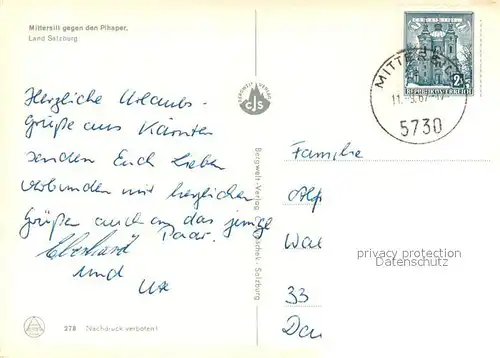 Mittersill gegen den Pihaper,
Land Salzburg
Herzliche Urlaubs-
grüße aus Kärnten
senden Euch Lieben
verbunden mit herzlichen
Grüßen auch an das junge
Paar.
Eberhard
und
Ute
278 Nachdruck verboten!
BERGWELT VERLAG
CJS
Bergwelt-Verlag
Salzburg
REPUBLIK ÖSTERREICH
MITTERSILL
5730
Familie
33
privacy protection
Datenschutz